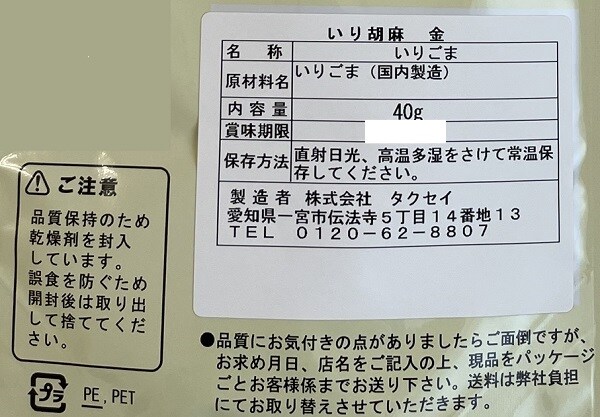 いり胡麻　金
名　称　いりごま
原材料名　いりごま（国内製造）
内容量　40g
賞味期限
保存方法　直射日光、高温多湿をさけて常温保
存してください。
製造者　株式会社　タクセイ
愛知県一宮市伝法寺５丁目１４番地１３
ＴＥＬ　０１２０－６２－８８０７
ご注意
品質保持のため
乾燥剤を封入
しています。
誤食を防ぐため
開封後は取り出
して捨ててくだ
さい。
プラ
PE, PET
●品質にお気付きの点がありましたらご面倒ですが、
お求め月日、店名をご記入の上、現品をパッケージ
ごとお客様係までお送り下さい。送料は弊社負担
にてお取り替えさせていただきます。